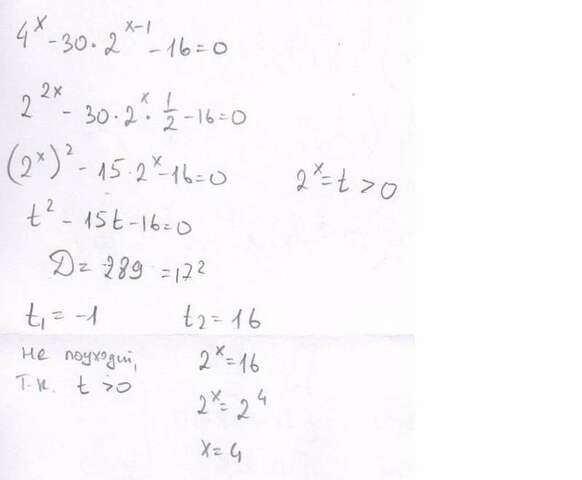 4^x - 30·2^{x-1} - 16 = 0
2^{2x} - 30·2^x·\frac{1}{2} - 16 = 0
(2^x)^2 - 15·2^x - 16 = 0 2^x = t > 0
t^2 - 15t - 16 = 0
D = 289 = 17^2
t_1 = -1 t_2 = 16
не 2^x = 16
т.к. t > 0 2^x = 2^4
x = 4